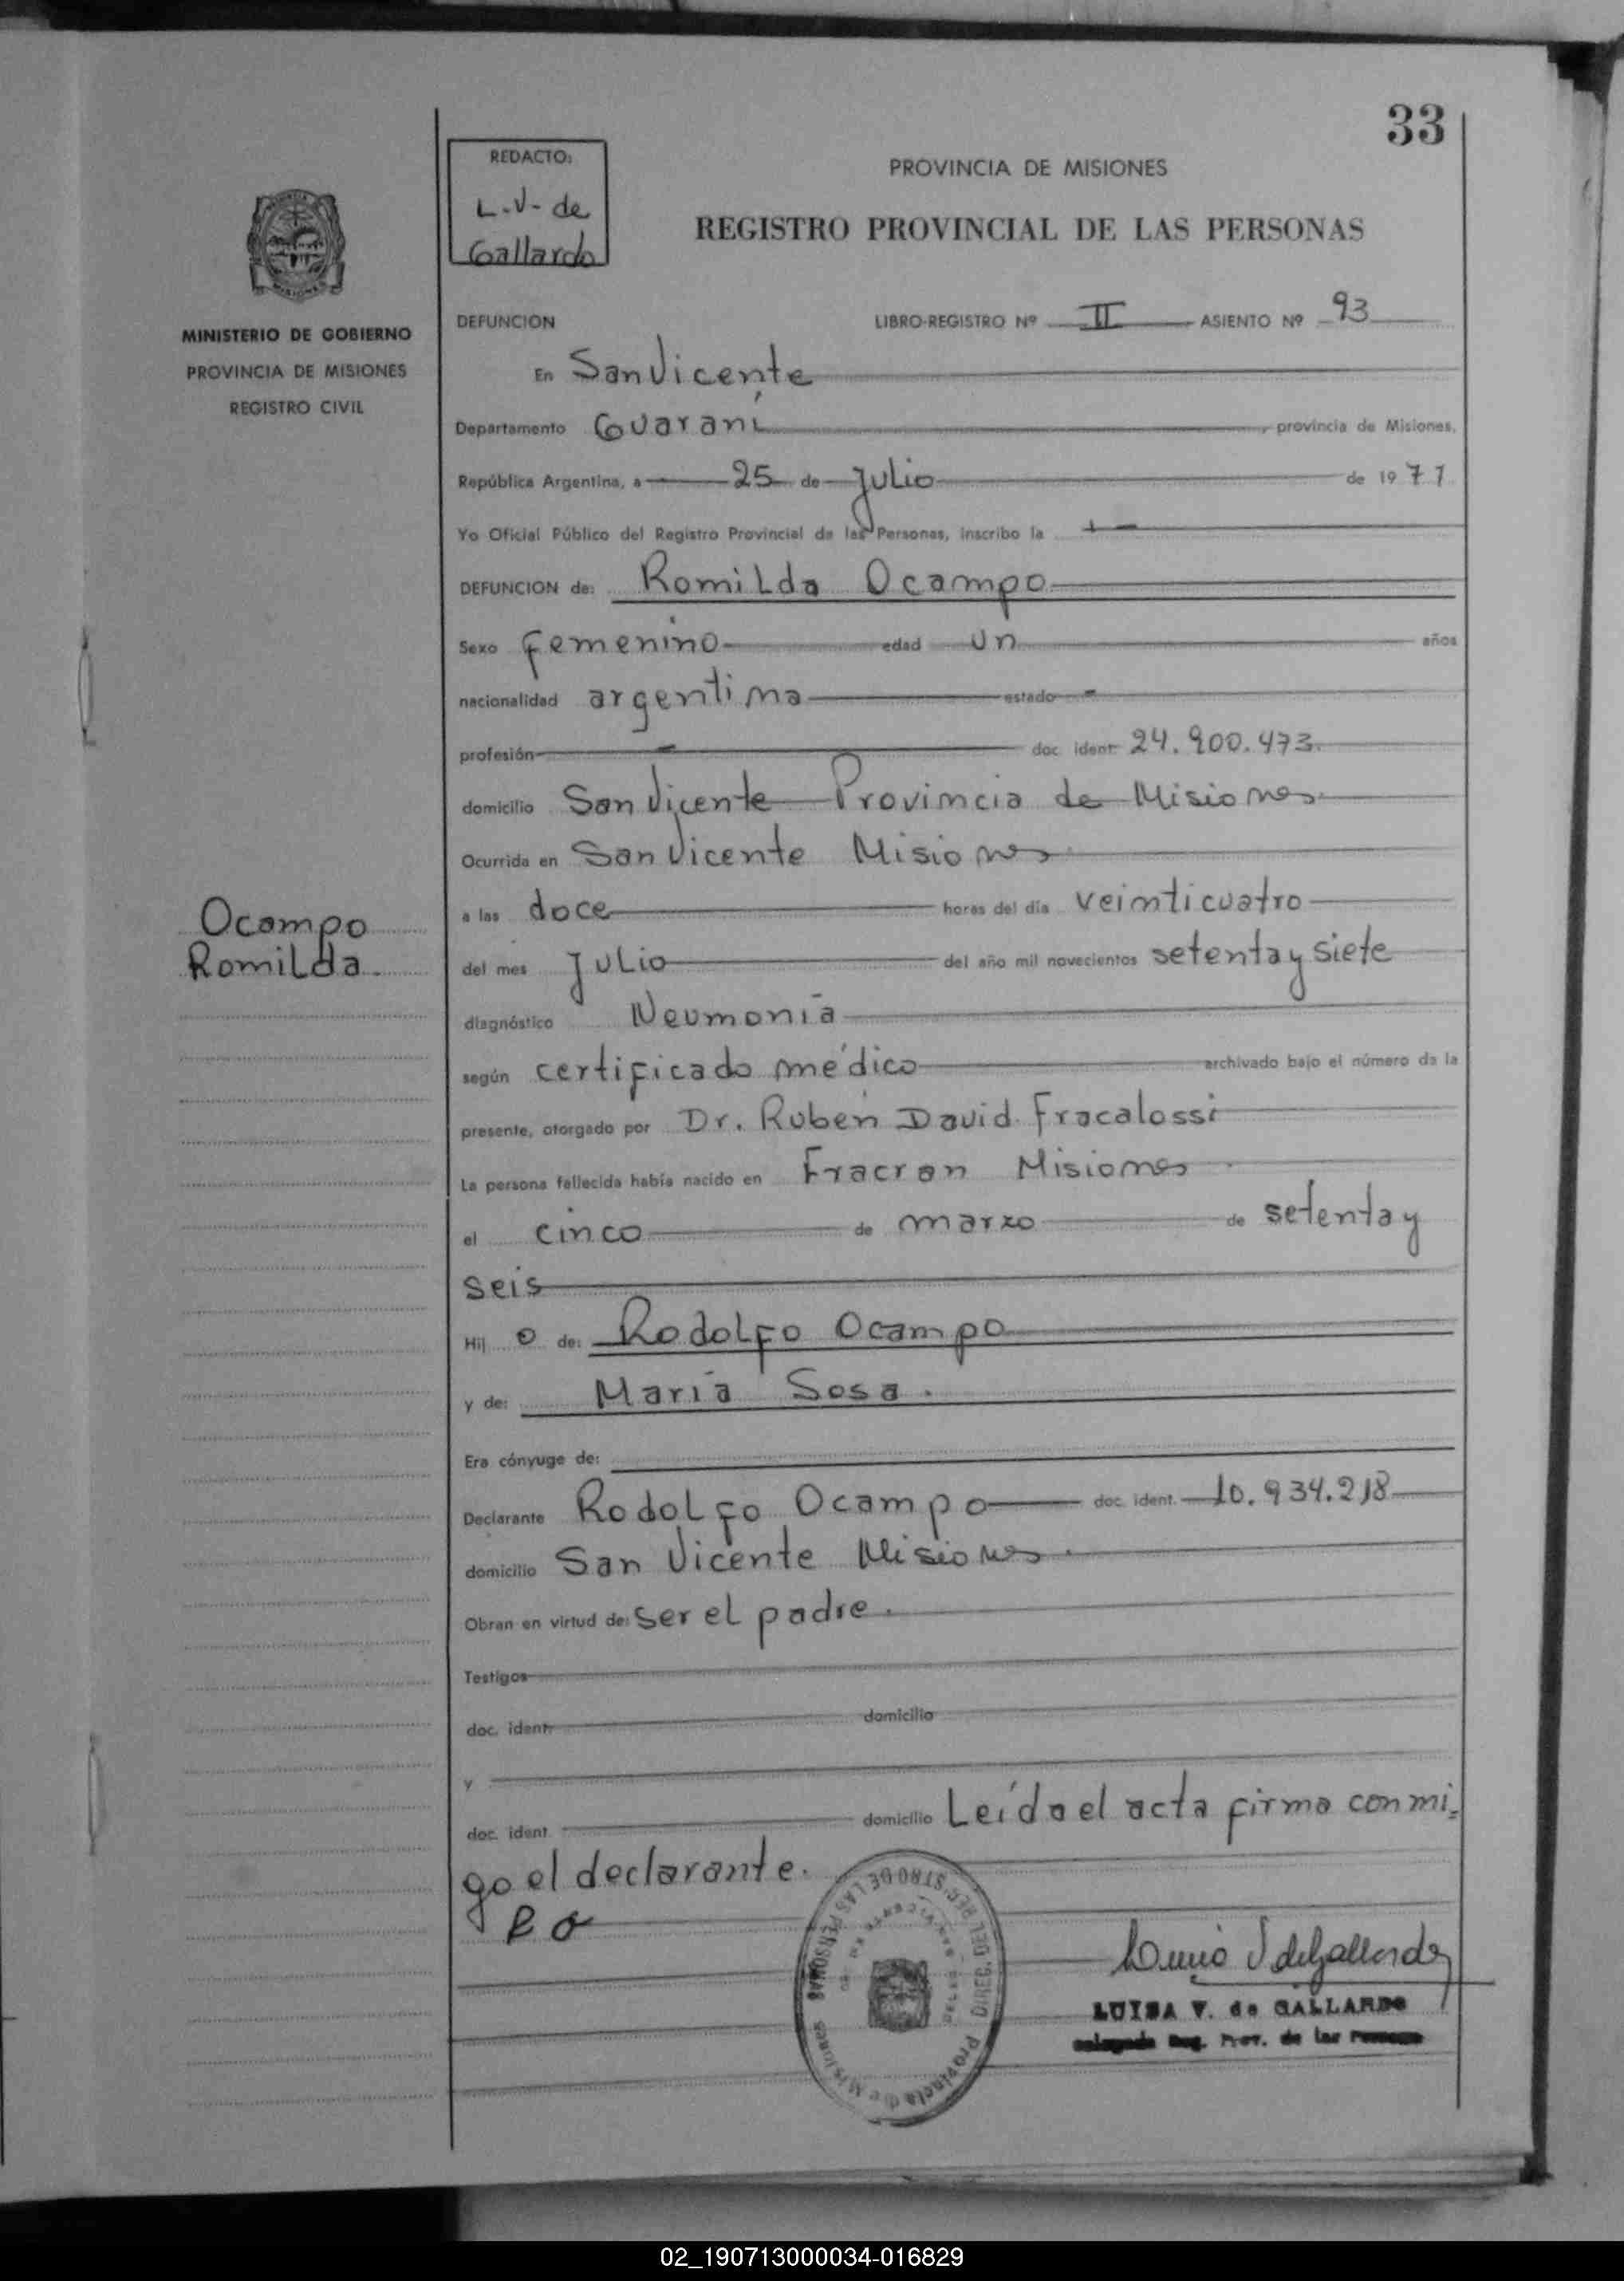 33
REDACTO:
L.V- de
Gallardo
PROVINCIA DE MISIONES
REGISTRO PROVINCIAL DE LAS PERSONAS
MINISTERIO DE GOBIERNO
PROVINCIA DE MISIONES
REGISTRO CIVIL
DEFUNCION LIBRO-REGISTRO Nº II ASIENTO Nº 93
En San Vicente
Departamento Guaraní, provincia de Misiones,
República Argentina, a 25 de Julio de 1977
Yo Oficial Público del Registro Provincial de las Personas, inscribo la
DEFUNCION de: Romilda Ocampo
Sexo femenino edad un años
nacionalidad argentina estado -
profesión - doc ident 24.900.473.
domicilio San Vicente Provincia de Misiones
Ocurrida en San Vicente Misiones
Ocampo
Romilda
a las doce horas del día veinticuatro
del mes Julio del año mil novecientos setenta y siete
diagnóstico Neumonía
según certificado médico archivado bajo el número de la
presente, otorgado por Dr. Ruben David Fracalossi
La persona fallecida había nacido en Fracran Misiones
el cinco de marzo de setenta y
seis
Hij o de: Rodolfo Ocampo
y de: María Sosa.
Era cónyuge de:
Declarante Rodolfo Ocampo doc. ident. 10.934.218
domicilio San Vicente Misiones.
Obran en virtud de: ser el padre.
Testigos
doc. ident. domicilio
y
doc. ident. domicilio Leída el acta firma conmi=
go el declarante.
R O
DIREC. DEL REGISTRO DE LAS PERSONAS
Provincia de Misiones
LUISA V. de GALLARDO
Delegada Reg. Prov. de las Personas
02_190713000034-016829